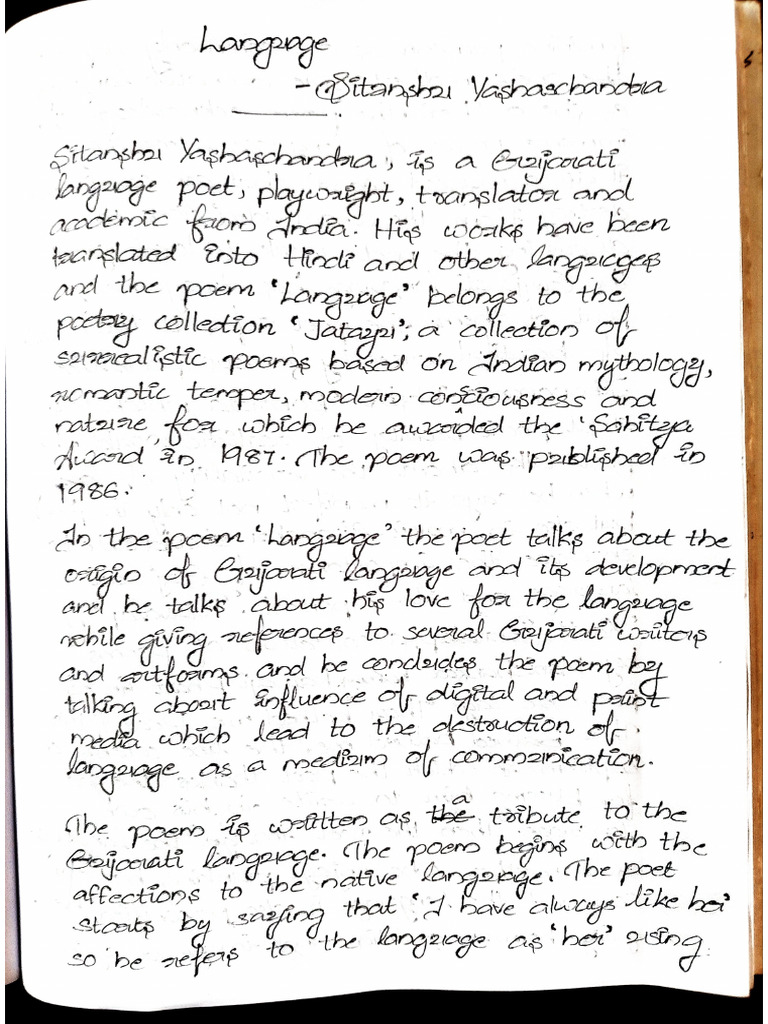 Language
- Sitanshu Yashaschandra
Sitanshu Yashaschandra, is a Gujarati
language poet, playwright, translator and
academic from India. His works have been
translated into Hindi and other languages
and the poem 'Language' belongs to the
poetry collection 'Jatayu', a collection of
surrealistic poems based on Indian mythology,
romantic temper, modern consciousness and
nature for which he awarded the 'Sahitya
Award' in 1987. The poem was published in
1986.
In the poem 'Language' the poet talks about the
origin of Gujarati language and its development
and he talks about his love for the language
while giving references to several Gujarati writers
and artforms and he concludes the poem by
talking about influence of digital and print
media which lead to the destruction of
language as a medium of communication.
The poem is written as a tribute to the
Gujarati language. The poem begins with the
affections to the native language. The poet
starts by saying that 'I have always like her'
so he refers to the language as 'her' using